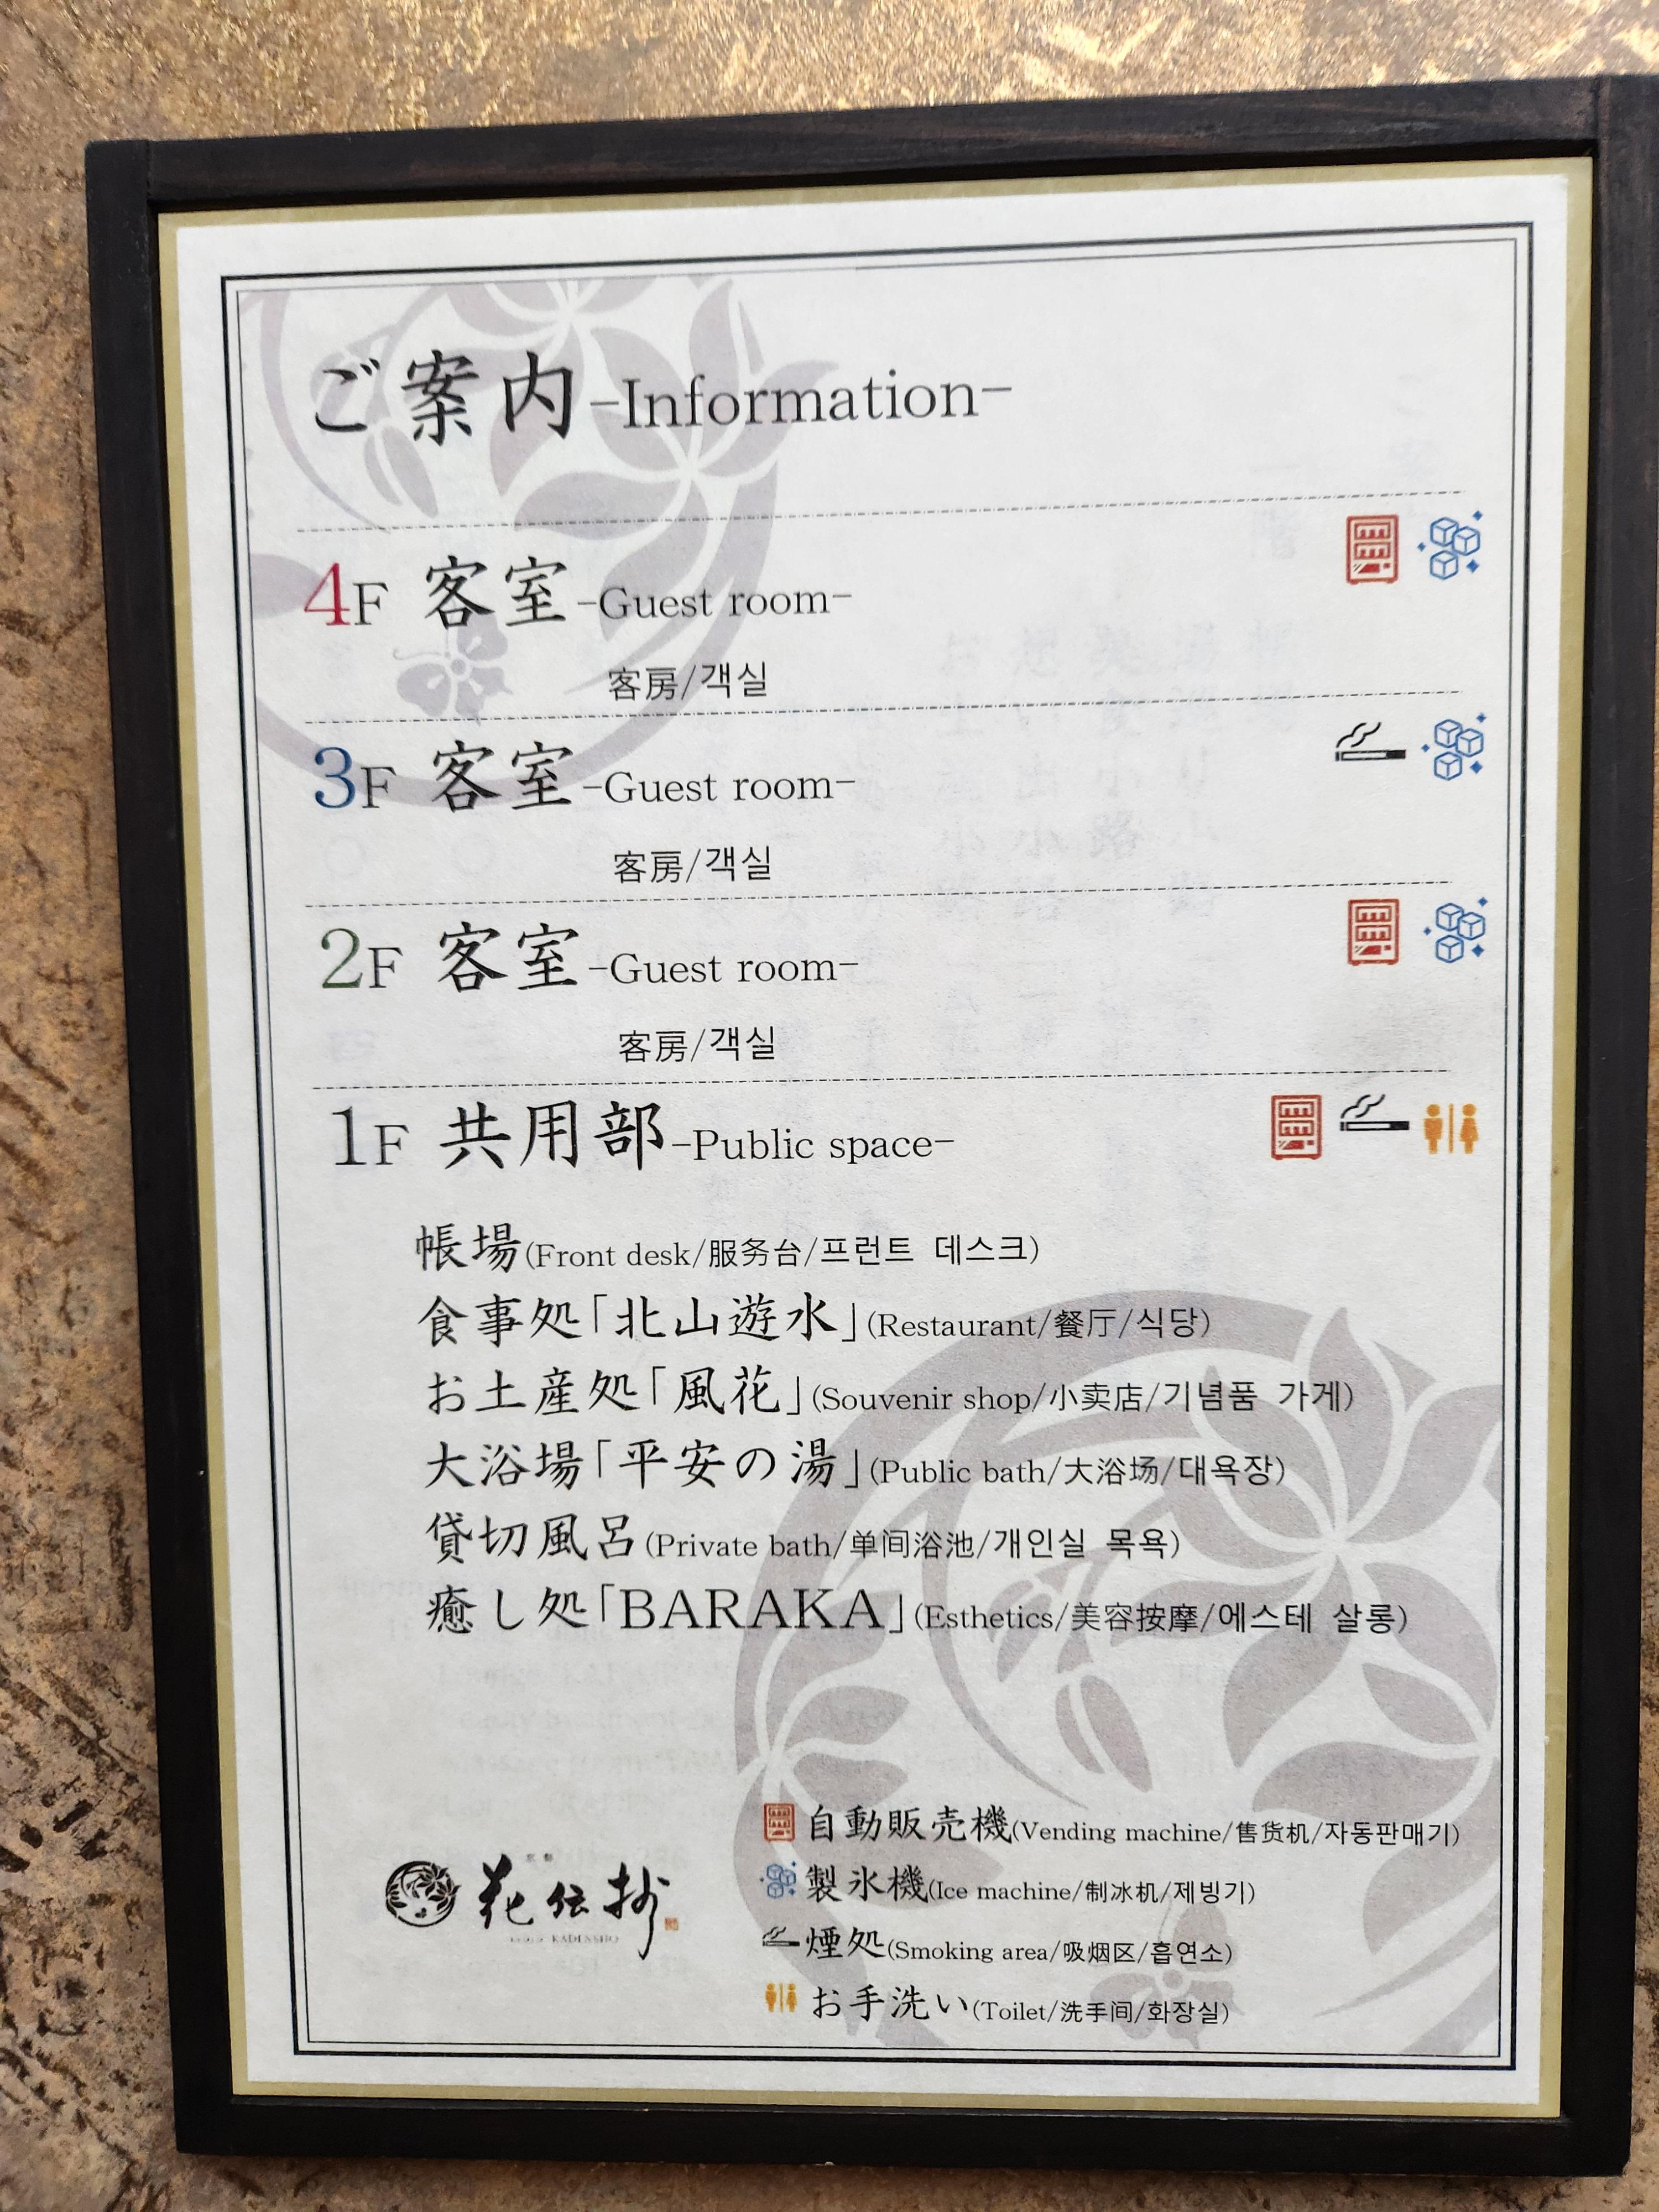 ご案内-Information-
4F 客室-Guest room-
客房/객실
3F 客室-Guest room-
客房/객실
2F 客室-Guest room-
客房/객실
1F 共用部-Public space-
帳場(Front desk/服务台/프런트 데스크)
食事処「北山遊水」(Restaurant/餐厅/식당)
お土産処「風花」(Souvenir shop/小卖店/기념품 가게)
大浴場「平安の湯」(Public bath/大浴场/대욕장)
貸切風呂(Private bath/单间浴池/개인실 목욕)
癒し処「BARAKA」(Esthetics/美容按摩/에스테 살롱)
自動販売機(Vending machine/售货机/자동판매기)
製氷機(Ice machine/制冰机/제빙기)
煙処(Smoking area/吸烟区/흡연소)
お手洗い(Toilet/洗手间/화장실)
花伝抄
KADENSHO